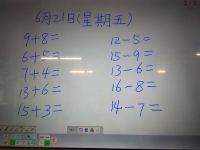 6月21日(星期五)
9+8=
12-5=
6+5=
15-9=
7+4=
13-6=
13+6=
16-8=
15+3=
14-7=